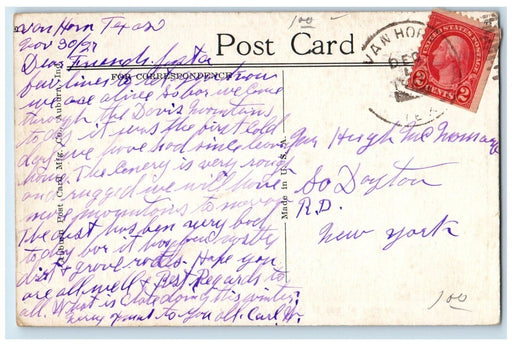 Van Horn Texas
Nov 30/27
Post Card
Dear Friends. Just a
FOR CORRESPONDENCE
few lines to let you know
we are alive so far we came
through the Davis Mountains
to day it was the first cold
day we have had since leaving
home. The scenery is very rough
and rugged we will have
more mountains to morrow
The dust has been very bad
to day for it
dirt & grove roads. Hope you
are all well & Best Regards to
all. What is Clate doing this winter,
to you all. Carl W.
Auburn Post Card Mfg. Co. Auburn, Ind.
Made in U. S. A.
VAN HORN
DEC
UNITED STATES POSTAGE
2 CENTS 2
Mr Hugh McNomage
So Dayton
R.D.
New York
1 00
1 00